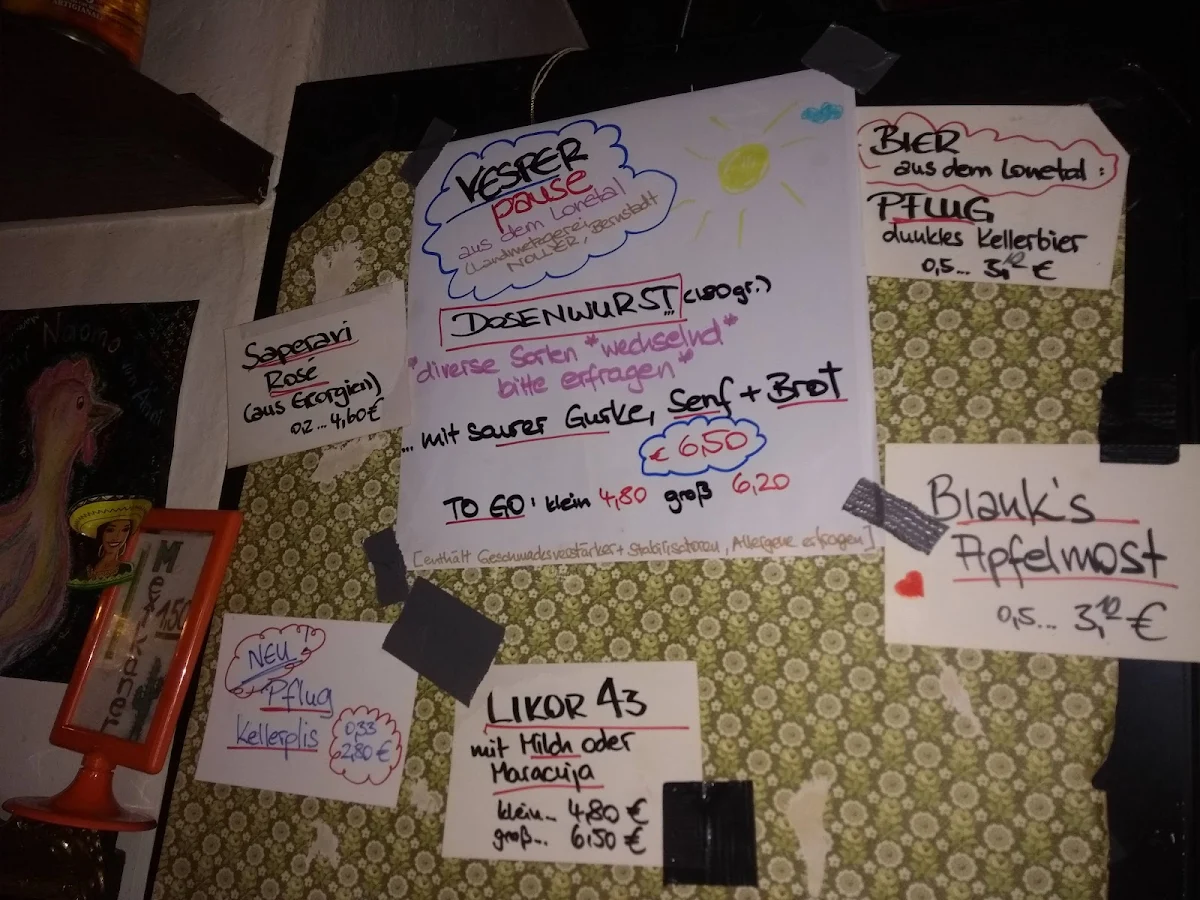 ARTIGIANALE
VESPER
pause
aus dem Lonetal
(Landmetzgerei
NOLLER, Bernstadt
DOSENWURST (180gr.)
*diverse Sorten *wechselnd*
bitte erfragen*
... mit saurer Gurke, Senf + Brot
€ 6,50
TO GO: klein 4,80 groß 6,20
[enthält Geschmacksverstärker + Stabilisatoren, Allergene erfragen]
BIER
aus dem Lonetal:
PFLUG
dunkles Kellerbier
0,5... 3,10 €
Saperavi
Rosé
(aus Georgien)
0,2... 4,60€
Naomo
Blank's
Apfelmost
0,5... 3,10 €
M 1,50
Mexikaner
NEU
Pflug
Kellerpils
0,33
2,80 €
LIKÖR 43
mit Milch oder
Maracuja
klein... 4,80 €
groß... 6,50 €